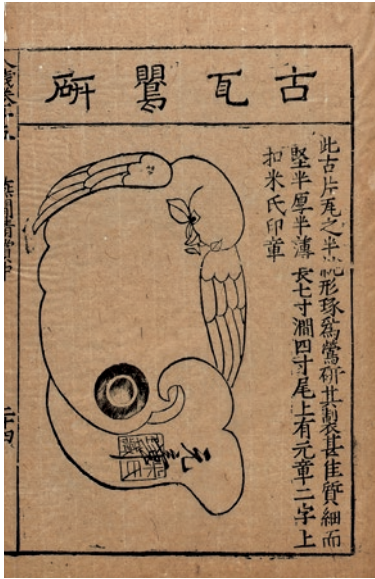 古瓦鸎研
此古片瓦之半形琢為鶯研其製甚佳質細而
堅半厚半薄長七寸濶四寸尾上有元章二字上
扣米氏印章
元章
燕閒清賞